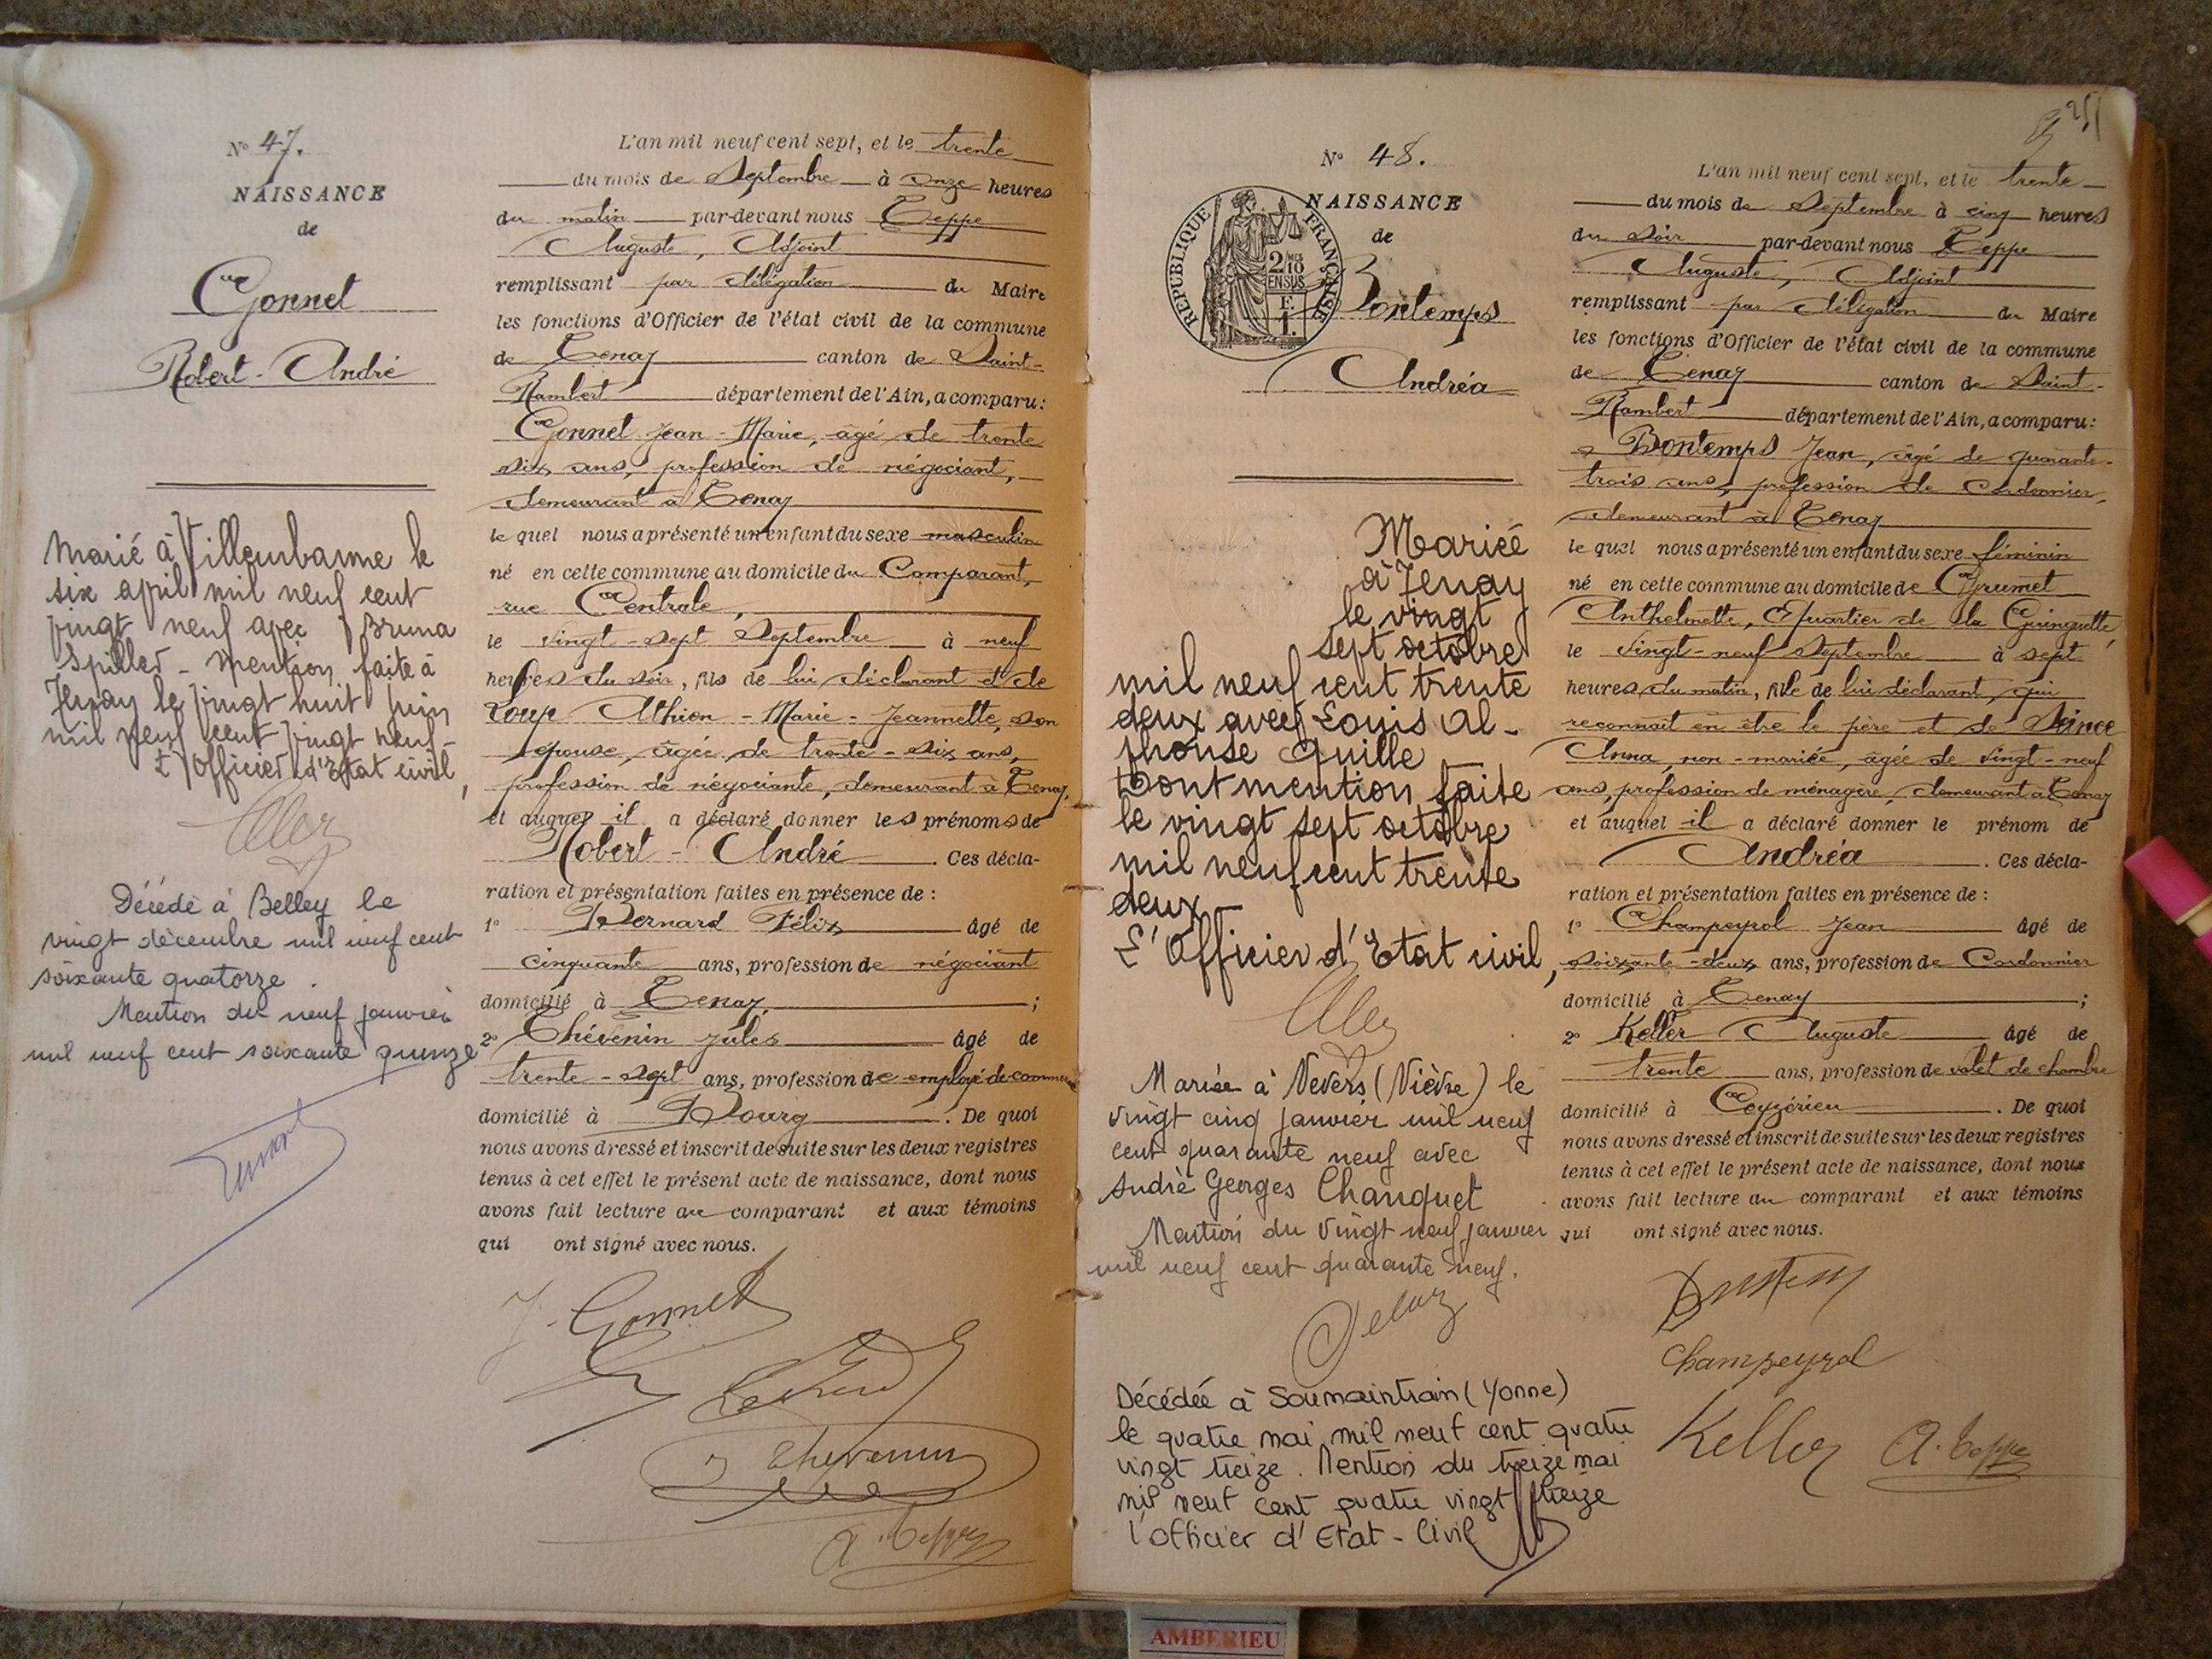 N° 47.
NAISSANCE
de
Gonnet
Robert-André
Marié à Villeurbanne le
six april mil neuf cent
vingt neuf avec Bruna
Spiller - Mention faite à
Tenay le vingt huit juin
mil neuf cent vingt neuf -
L'Officier d'Etat civil,
Décédé à Belley le
vingt décembre mil neuf cent
soixante quatorze.
Mention du neuf janvier
mil neuf cent soixante quinze
L'an mil neuf cent sept, et le trente
du mois de Septembre à onze heures
du matin par-devant nous Teppe
Auguste, Adjoint
remplissant par délégation du Maire
les fonctions d'Officier de l'état civil de la commune
de Tenay canton de Saint-
Rambert département de l'Ain, a comparu:
Gonnet Jean-Marie, âgé de trente
six ans, profession de négociant,
demeurant à Tenay
le quel nous a présenté un enfant du sexe masculin
né en cette commune au domicile du Comparant,
rue Centrale,
le vingt-sept Septembre à neuf
heures du soir, fils de lui déclarant et de
Loup Marie-Jeannette, son
épouse, âgée de trente-six ans,
profession de négociante, demeurant à Tenay,
et auquel il a déclaré donner les prénoms de
Robert-André. Ces décla-
ration et présentation faites en présence de:
1° Bernard Félix âgé de
cinquante ans, profession de négociant
domicilié à Tenay;
2° Thévenin Jules âgé de
trente-sept ans, profession de employé de commerce
domicilié à Bourg. De quoi
nous avons dressé et inscrit de suite sur les deux registres
tenus à cet effet le présent acte de naissance, dont nous
avons fait lecture au comparant et aux témoins
qui ont signé avec nous.
J. Gonnet
J Thevenin
A. Teppe
N° 48.
NAISSANCE
de
REPUBLIQUE FRANÇAISE
2 MES
10
EN SUS
Bontemps
Andréa
Mariée
à Tenay
le vingt
sept octobre
mil neuf cent trente
deux avec Louis Al-
phonse Quille
Dont mention faite
le vingt sept octobre
mil neuf cent trente
deux
L'Officier d'Etat civil,
Mariée à Nevers (Nièvre) le
vingt cinq janvier mil neuf
cent quarante neuf avec
André Georges Chanquet
Mention du vingt neuf janvier
mil neuf cent quarante neuf.
Décédée à Soumaintrain (Yonne)
le quatre mai mil neuf cent quatre
vingt treize. Mention du treize mai
mil neuf cent quatre vingt treize
l'officier d'Etat-Civil
L'an mil neuf cent sept, et le trente
du mois de Septembre à cinq heures
du soir par-devant nous Teppe
Auguste, Adjoint
remplissant par délégation du Maire
les fonctions d'Officier de l'état civil de la commune
de Tenay canton de Saint-
Rambert département de l'Ain, a comparu:
Bontemps Jean, âgé de quarante-
trois ans, profession de Cordonnier,
demeurant à Tenay
le quel nous a présenté un enfant du sexe féminin
né en cette commune au domicile de Grumet
Anthelmette, Quartier de la Guinguette,
le vingt-neuf Septembre à sept
heures du matin, fille de lui déclarant, qui
reconnait en être le père et de
Anna, non-mariée, âgée de vingt-neuf
ans, profession de ménagère, demeurant à Tenay
et auquel il a déclaré donner le prénom de
Andréa. Ces décla-
ration et présentation faites en présence de:
1° Champeyrol Jean âgé de
soixante-deux ans, profession de Cordonnier
domicilié à Tenay;
2° Keller Auguste âgé de
trente ans, profession de valet de chambre
domicilié à Ceyzérieu. De quoi
nous avons dressé et inscrit de suite sur les deux registres
tenus à cet effet le présent acte de naissance, dont nous
avons fait lecture au comparant et aux témoins
qui ont signé avec nous.
Champeyrol
Keller A. Teppe
AMBERIEU